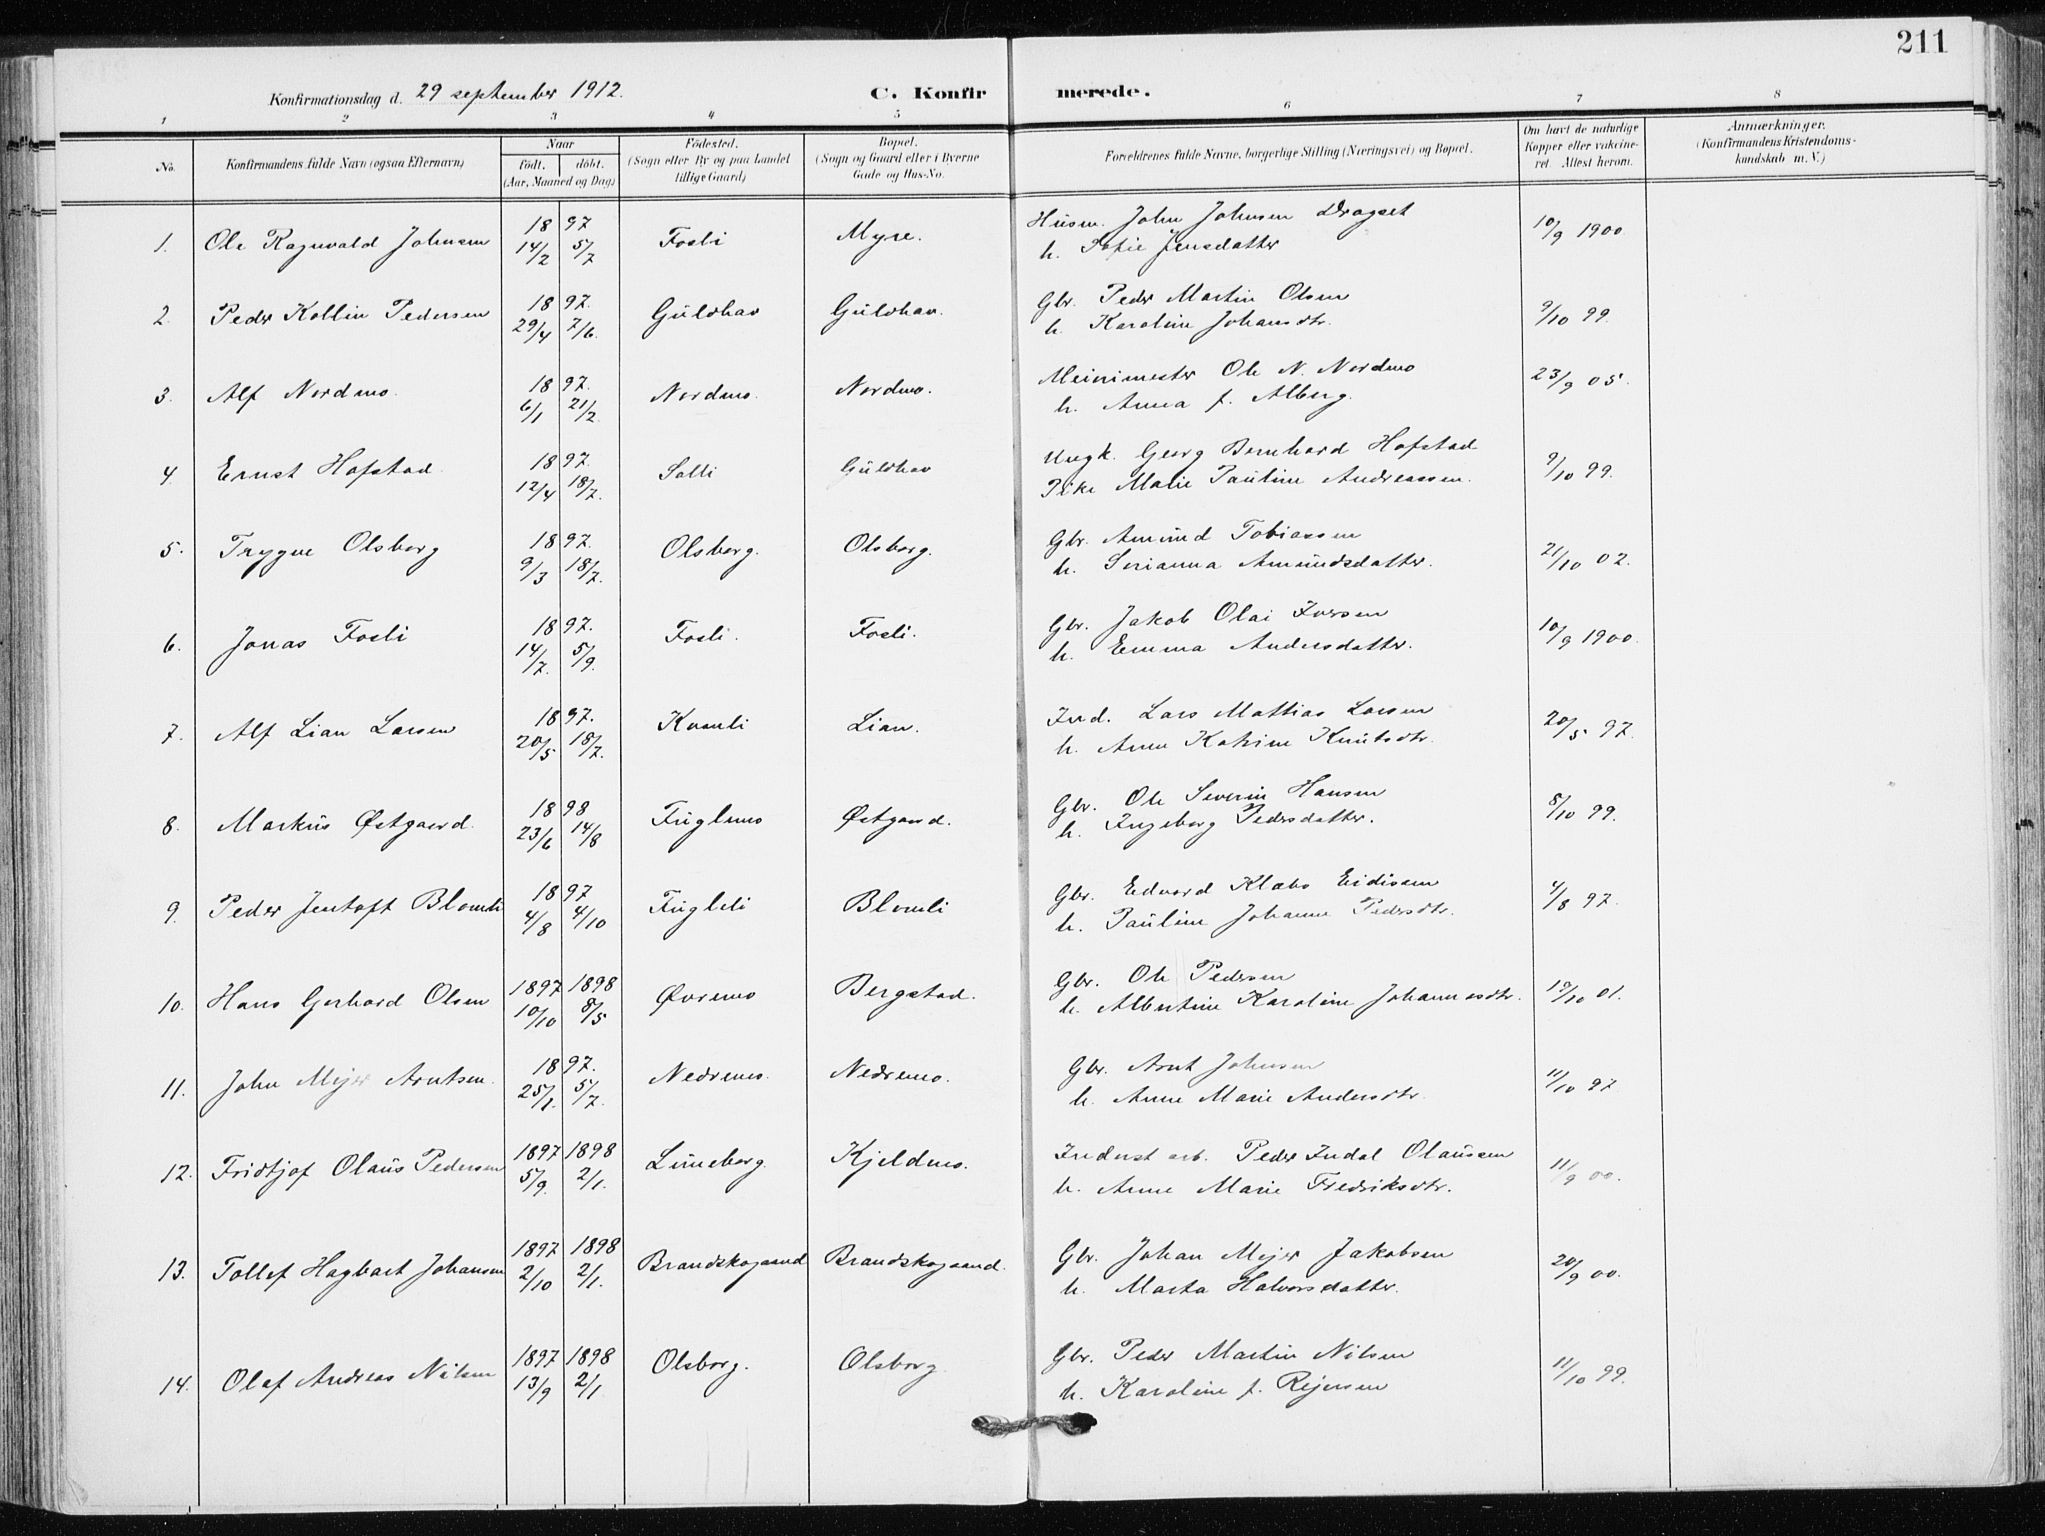 211
Konfirmationsdag d. 29 september 1912. C. Konfirmerede.
1 2 3 4 5 6 7 8
No. Konfirmandens fulde Navn (ogsaa Efternavn) Naar født. døbt. (Aar, Maaned og Dag) Fødested. (Sogn eller By og paa Landet tillige Gaard) Bopæl. (Sogn og Gaard eller i Byerne Gade og Hus-No. Forældrenes fulde Navne, borgerlige Stilling (Næringsvei) og Bopæl. Om havt de naturlige Kopper eller vakcineret. Attest herom. Anmærkninger. (Konfirmandens Kristendomskundskab m. V.)
1. Ole Ragnvald Johnsen 1897 14/2 5/7 Fosli Myre. Husm. John Johnsen Dragset 10/9 1900
h. Sofie Jensdatter
2. Peder Kollin Pedersen 1897. 29/4 7/6. Guldhav Guldhav. Gbr. Peder Martin Olsen 9/10 99.
h. Karoline Johansdtr.
3. Alf Nordmo. 1897. 6/1 21/2. Nordmo. Nordmo. Meierimester Ole N. Nordmo 23/9 05.
h. Anna f. Alberg.
4. Ernst Hofstad. 1897. 12/4 18/7. Solli Guldhav Ungk. Georg Bernhard Hofstad 9/10 99.
Pike Marie Pauline Andreassen.
5. Trygve Olsborg 1897. 9/3 18/7. Olsborg. Olsborg. Gbr. Amund Tobiassen 21/10 02.
h. Serianna Amundsdatter.
6. Jonas Fosli 1897. 14/7. 5/9. Fosli. Fosli. Gbr. Jakob Olai Iversen 10/9 1900.
h. Emma Andersdatter.
7. Alf Lian Larsen 1897. 20/5 18/7. Kvamli Lian. Ind. Lars Mathias Larsen 20/5 97.
h. Anne Katrine Knutsdtr.
8. Markus Østgaard. 1898 23/6 14/8 Fuglmo Østgaard. Gbr. Ole Severin Hansen 5/10 99.
h. Ingeborg Pedersdatter.
9. Peder Jentoft Blomli 1897 4/8 4/10 Fugleli Blomli Gbr. Edvard Klæbo Eidissen 4/8 97.
h. Pauline Johanne Pedersdtr.
10. Hans Gerhard Olsen 1897 1898 10/10 8/5 Øvremo Bergstad. Gbr. Ole Pedersen 10/10 01.
h. Albertine Karoline Johannesdtr.
11. John Mejer Arntsen. 1897. 25/1. 5/7. Nedremo. Nedremo. Gbr. Arnt Johnsen 11/10 97
h. Anne Marie Andersdtr.
12. Fridtjof Olaus Pedersen 1897 1898 5/9. 2/1. Luneborg. Kjeldmo. Inderst arb. Peder Indal Olaussen 11/9 00.
h. Anne Marie Fredriksdtr.
13. Tollef Hagbart Johansen 1897 1898 2/10 2/1. Brandskogaand Brandskogaand. Gbr. Johan Mejer Jakobsen 20/9 00.
h. Marta Halvorsdatter.
14. Olaf Andreas Nilsen 1897 1898 13/9 2/1. Olsborg. Olsborg Gbr. Peder Martin Nilsen 11/10 99.
h. Karoline f. Rejersen